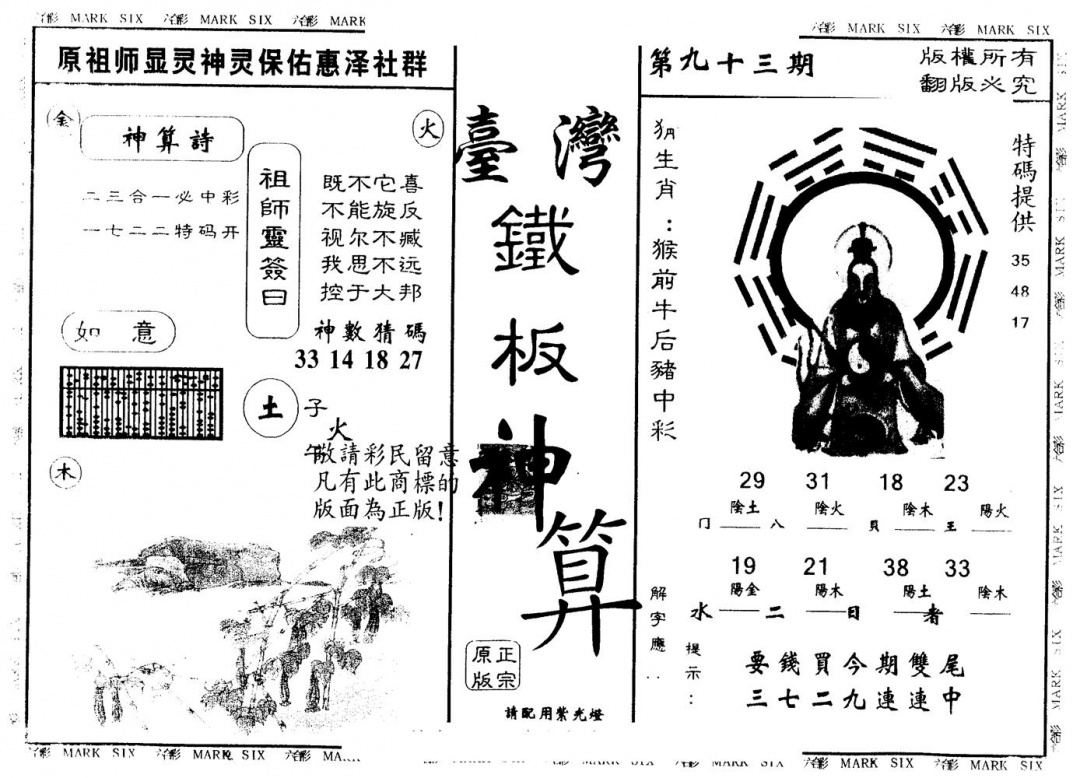 MARK SIX MARK SIX MARK
MARK SIX MARK SIX
原祖师显灵神灵保佑惠泽社群
金
火
神算詩
二三合一必中彩
一七二二特码开
祖師靈簽曰
既不它喜
不能旋反
视尔不臧
我思不远
控于大邦
神數猜碼
33 14 18 27
如意
土
子
火
午
木
敬請彩民留意
凡有此商標的
版面為正版!
臺灣
鐵
板
神
算
正宗
原版
請配用紫光燈
第九十三期
版權所有
翻版必究
生肖:猴前牛后豬中彩
特碼提供
35
48
17
29 31 18 23
陰土 陰火 陰木 陽火
八 貝 王
19 21 38 33
陽金 陽木 陽土 陰木
水 二 日 者
解字應
提示:
要錢買今期雙尾
三七二九連連中
MARK SIX MARK SIX
MARK SIX MARK SIX